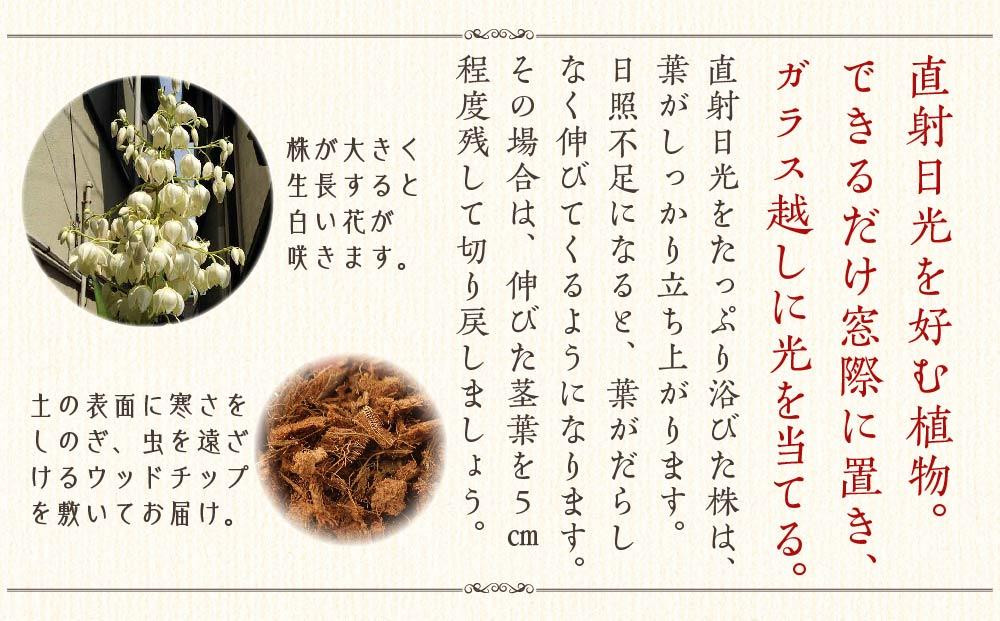 直射日光を好む植物。
できるだけ窓際に置き、
ガラス越しに光を当てる。
直射日光をたっぷり浴びた株は、
葉がしっかり立ち上がります。
日照不足になると、葉がだらし
なく伸びてくるようになります。
その場合は、伸びた茎葉を5cm
程度残して切り戻しましょう。
株が大きく
生長すると
白い花が
咲きます。
土の表面に寒さを
しのぎ、虫を遠ざ
けるウッドチップ
を敷いてお届け。